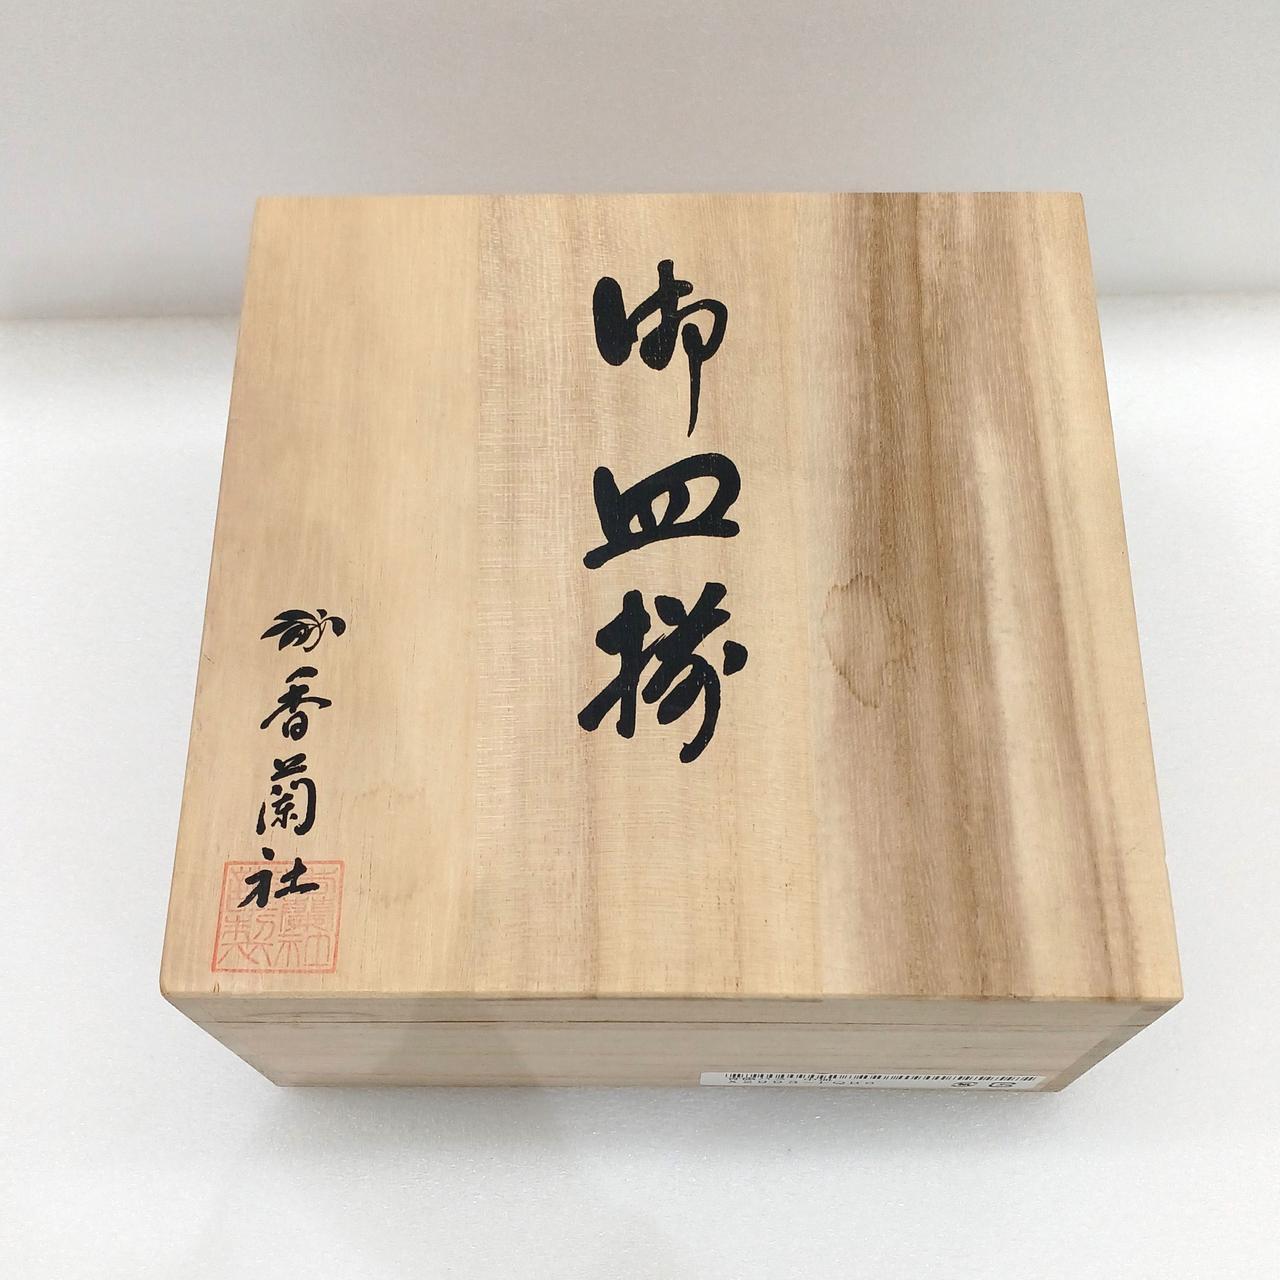 御皿揃
香蘭社